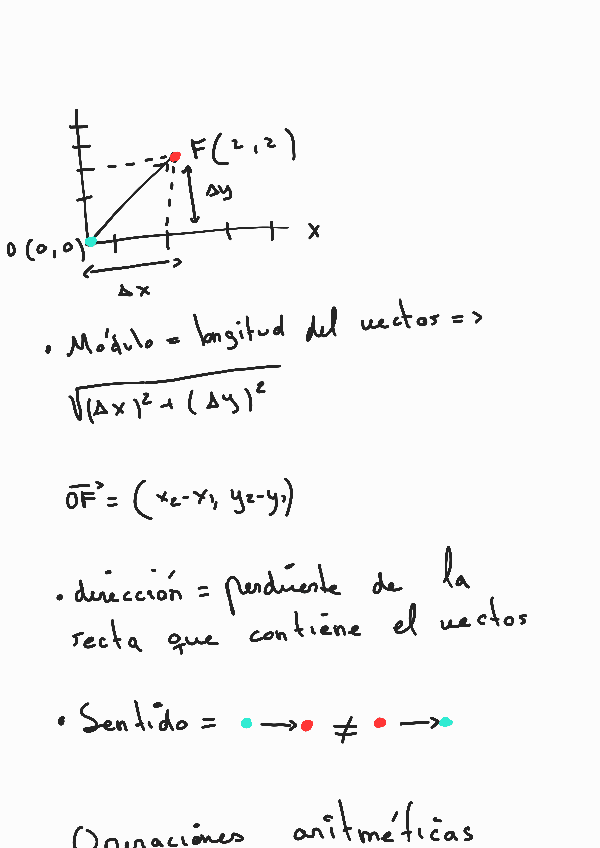 F(2,2)
Δy
O(0,0)
x
Δx
• Módulo = longitud del vector =>
√(Δx)² + (Δy)²
OF = (x₂-x₁, y₂-y₁)
• dirección = pendiente de la
recta que contiene el vector
• Sentido = → ≠ →
Operaciones aritméticas